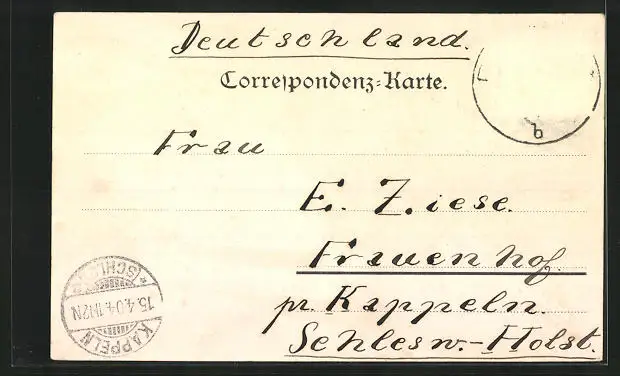 Deutschland.
Correspondenz-Karte.
b
Frau
E. Ziese.
Frauenhof.
pr. Kappeln.
Schlesw.-Holst.
KAPPELN
15.4.04.1-12N